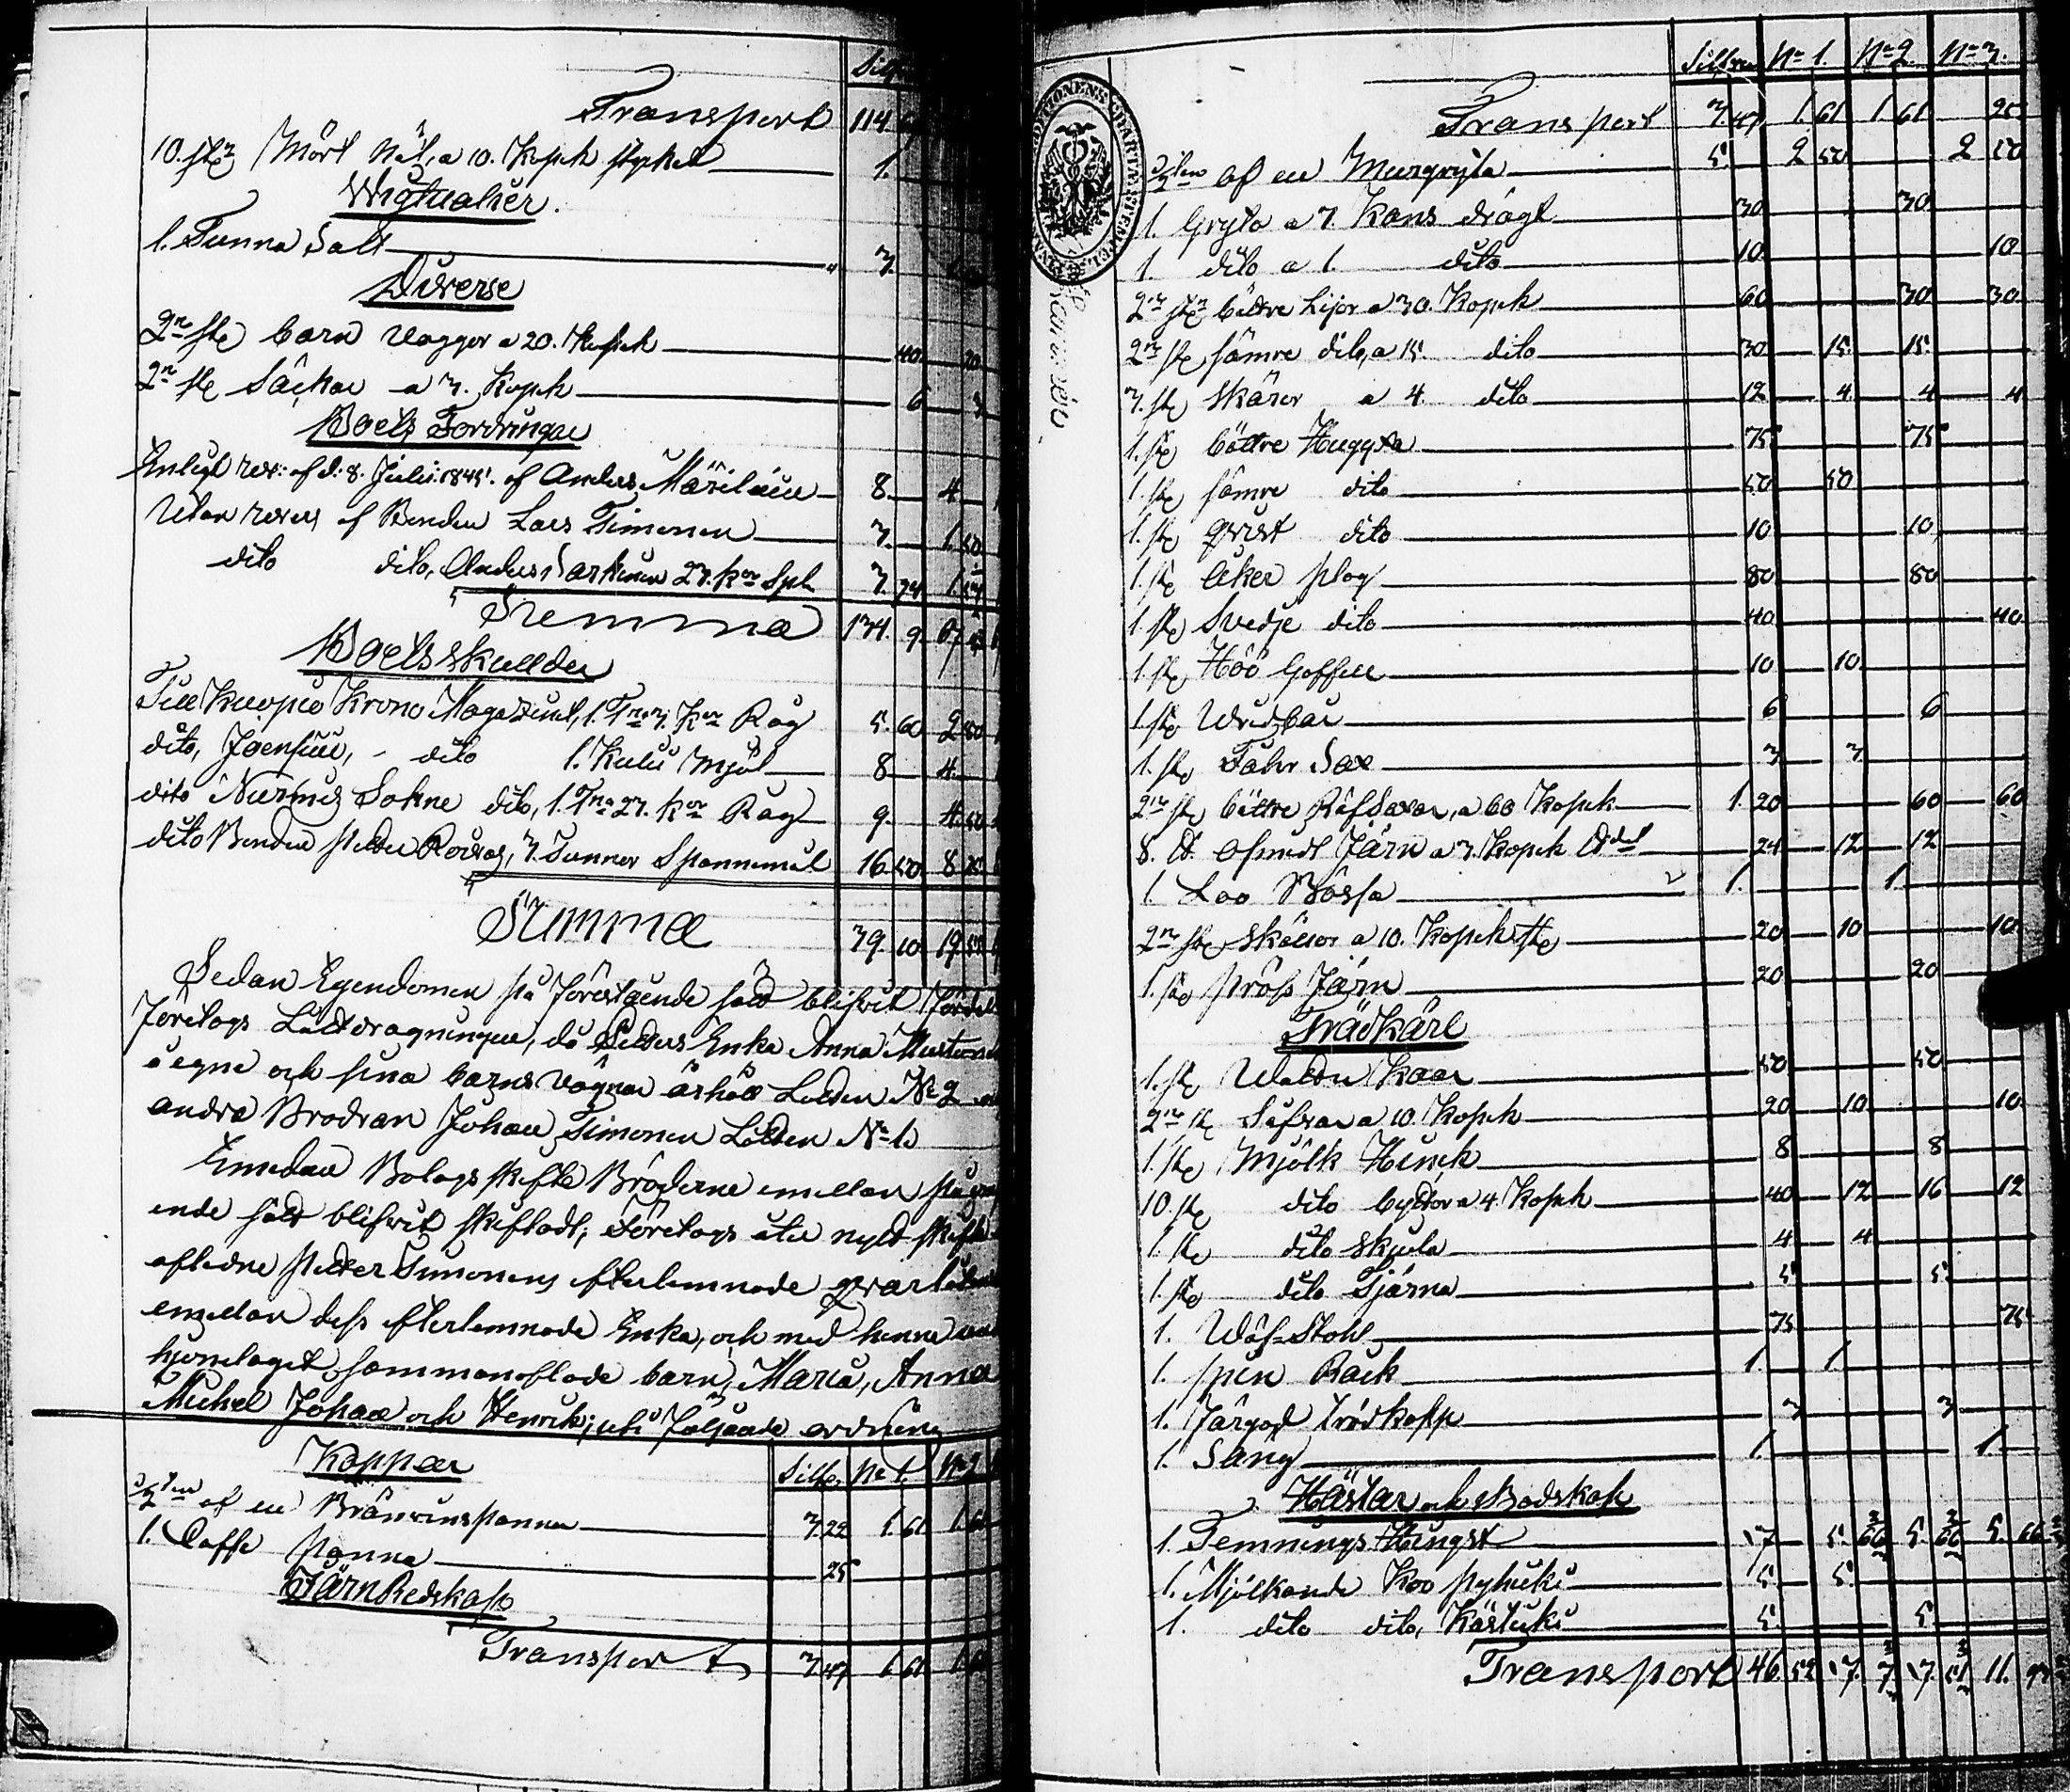 Silfr
Transport 114.
10. st Mört Nät, a 10. Kopek stycket 1.
Wigtualier.
1. Tunna Salt 3.
Diverse
2ne st barn vaggor a 20. Kopek 40 20
2ne st Säckar a 3. Kopek 6 3
Boets Fordringar
Enligt rev: af d: 8. Julii 1845. af Anders 8. 4
Utan revers af Bonden Lars Timonen 3. 1.50
dito dito, Anders 23. kor Spl 3. 74 1.
Summa 134. 9. 67
Boets skullder
Till Kuopio Krono Magazinet, 1. Tna 3. Kor Råg 5. 60 2 80
dito, Joensuu, - dito 1. Kulu Mjöl 8 4.
dito Nurmis Sokne dito, 1. Tna 23. kor Råg 9. 4 50
dito Bonden Petter, 3. Tunnor Spannemål 16 50 8 25
Summa 39. 10 19
Sedan Egendomen på förestående sätt blifvit fördel
företogs Lottdragningen, då Petters Enka Anna
å egne och sina barns vägnar erhöll Lotten No 2
andra Brodran Johan Timonen Lotten No 1.
Emedan Bolags skifte Bröderne emellan på
ende sätt blifvit skiftadt; företogs uti nytt skifte
aflidne Petter Simonens efterlemnade qvarlåten
emellan dess efterlemnade Enka, och med henne
hjonelaget sammanaflade barn, Maria, Anna
Michel Johan och Henrik; uti följande ordning
Koppar Silfr No 1. No 2
½ten af en Bränvinspanna 3 22 1. 61 1. 61
1. Caffe panna 25
Järn Redskap
Transport 3 47 1. 61 1. 61
Silfver No 1. No 2. No 3.
Transport 3. 47 1. 61 1 61 25
½ten af en Murgryta 5. 2 50 2 50
1. Gryta a 3. Kans drägt 30 30
1. dito a 1. dito 10 10
2ne st bättre Lijor a 30. Kopek 60 30 30
2ne st sämre dito, a 15. dito 30 15 15
3. st Skäror a 4 dito 12 4 4 4
1. st bättre Huggyxa 75 75
1. st sämre dito 50 50
1. st qvist dito 10 10
1. st Åker plog 80 80
1. st Svedje dito 40 40
1. st Höö Gaffell 10 10
1. st 6 6
1. st Fåhr Sax 3 3
2ne st bättre Räfsaxar, a 60 Kopek 1. 20 60 60
8. ℔ osmidt Järn a 3. Kopek ℔det 24 12 12
1. Loo Bössa 1. 1
2ne st skållor a 10. Kopek st 20 10 10
1. st präss Järn 20 20
Trädkäril
1. st Kaar 50 50
2ne st a 10. Kopek 20 10 10
1. st Mjölk Hinck 8 8
10. st dito byttor a 4 Kopek 40 12 16 12
1. st dito skjula 4 4
1. st dito Tjärna 5 5
1. Wäf-Stohl 75 75
1. spin Rock 1. 1.
1. färgad trädkopp 3 3
1. Säng 1. 1
Hästar och Bodskap
1. Temnings Hingst 17 5. 66⅔ 5. 66⅔ 5. 66⅔
1. Mjölkande Koo 5. 5
1. dito dito, 5. 5
Transport 46. 52 17. 17. 11.